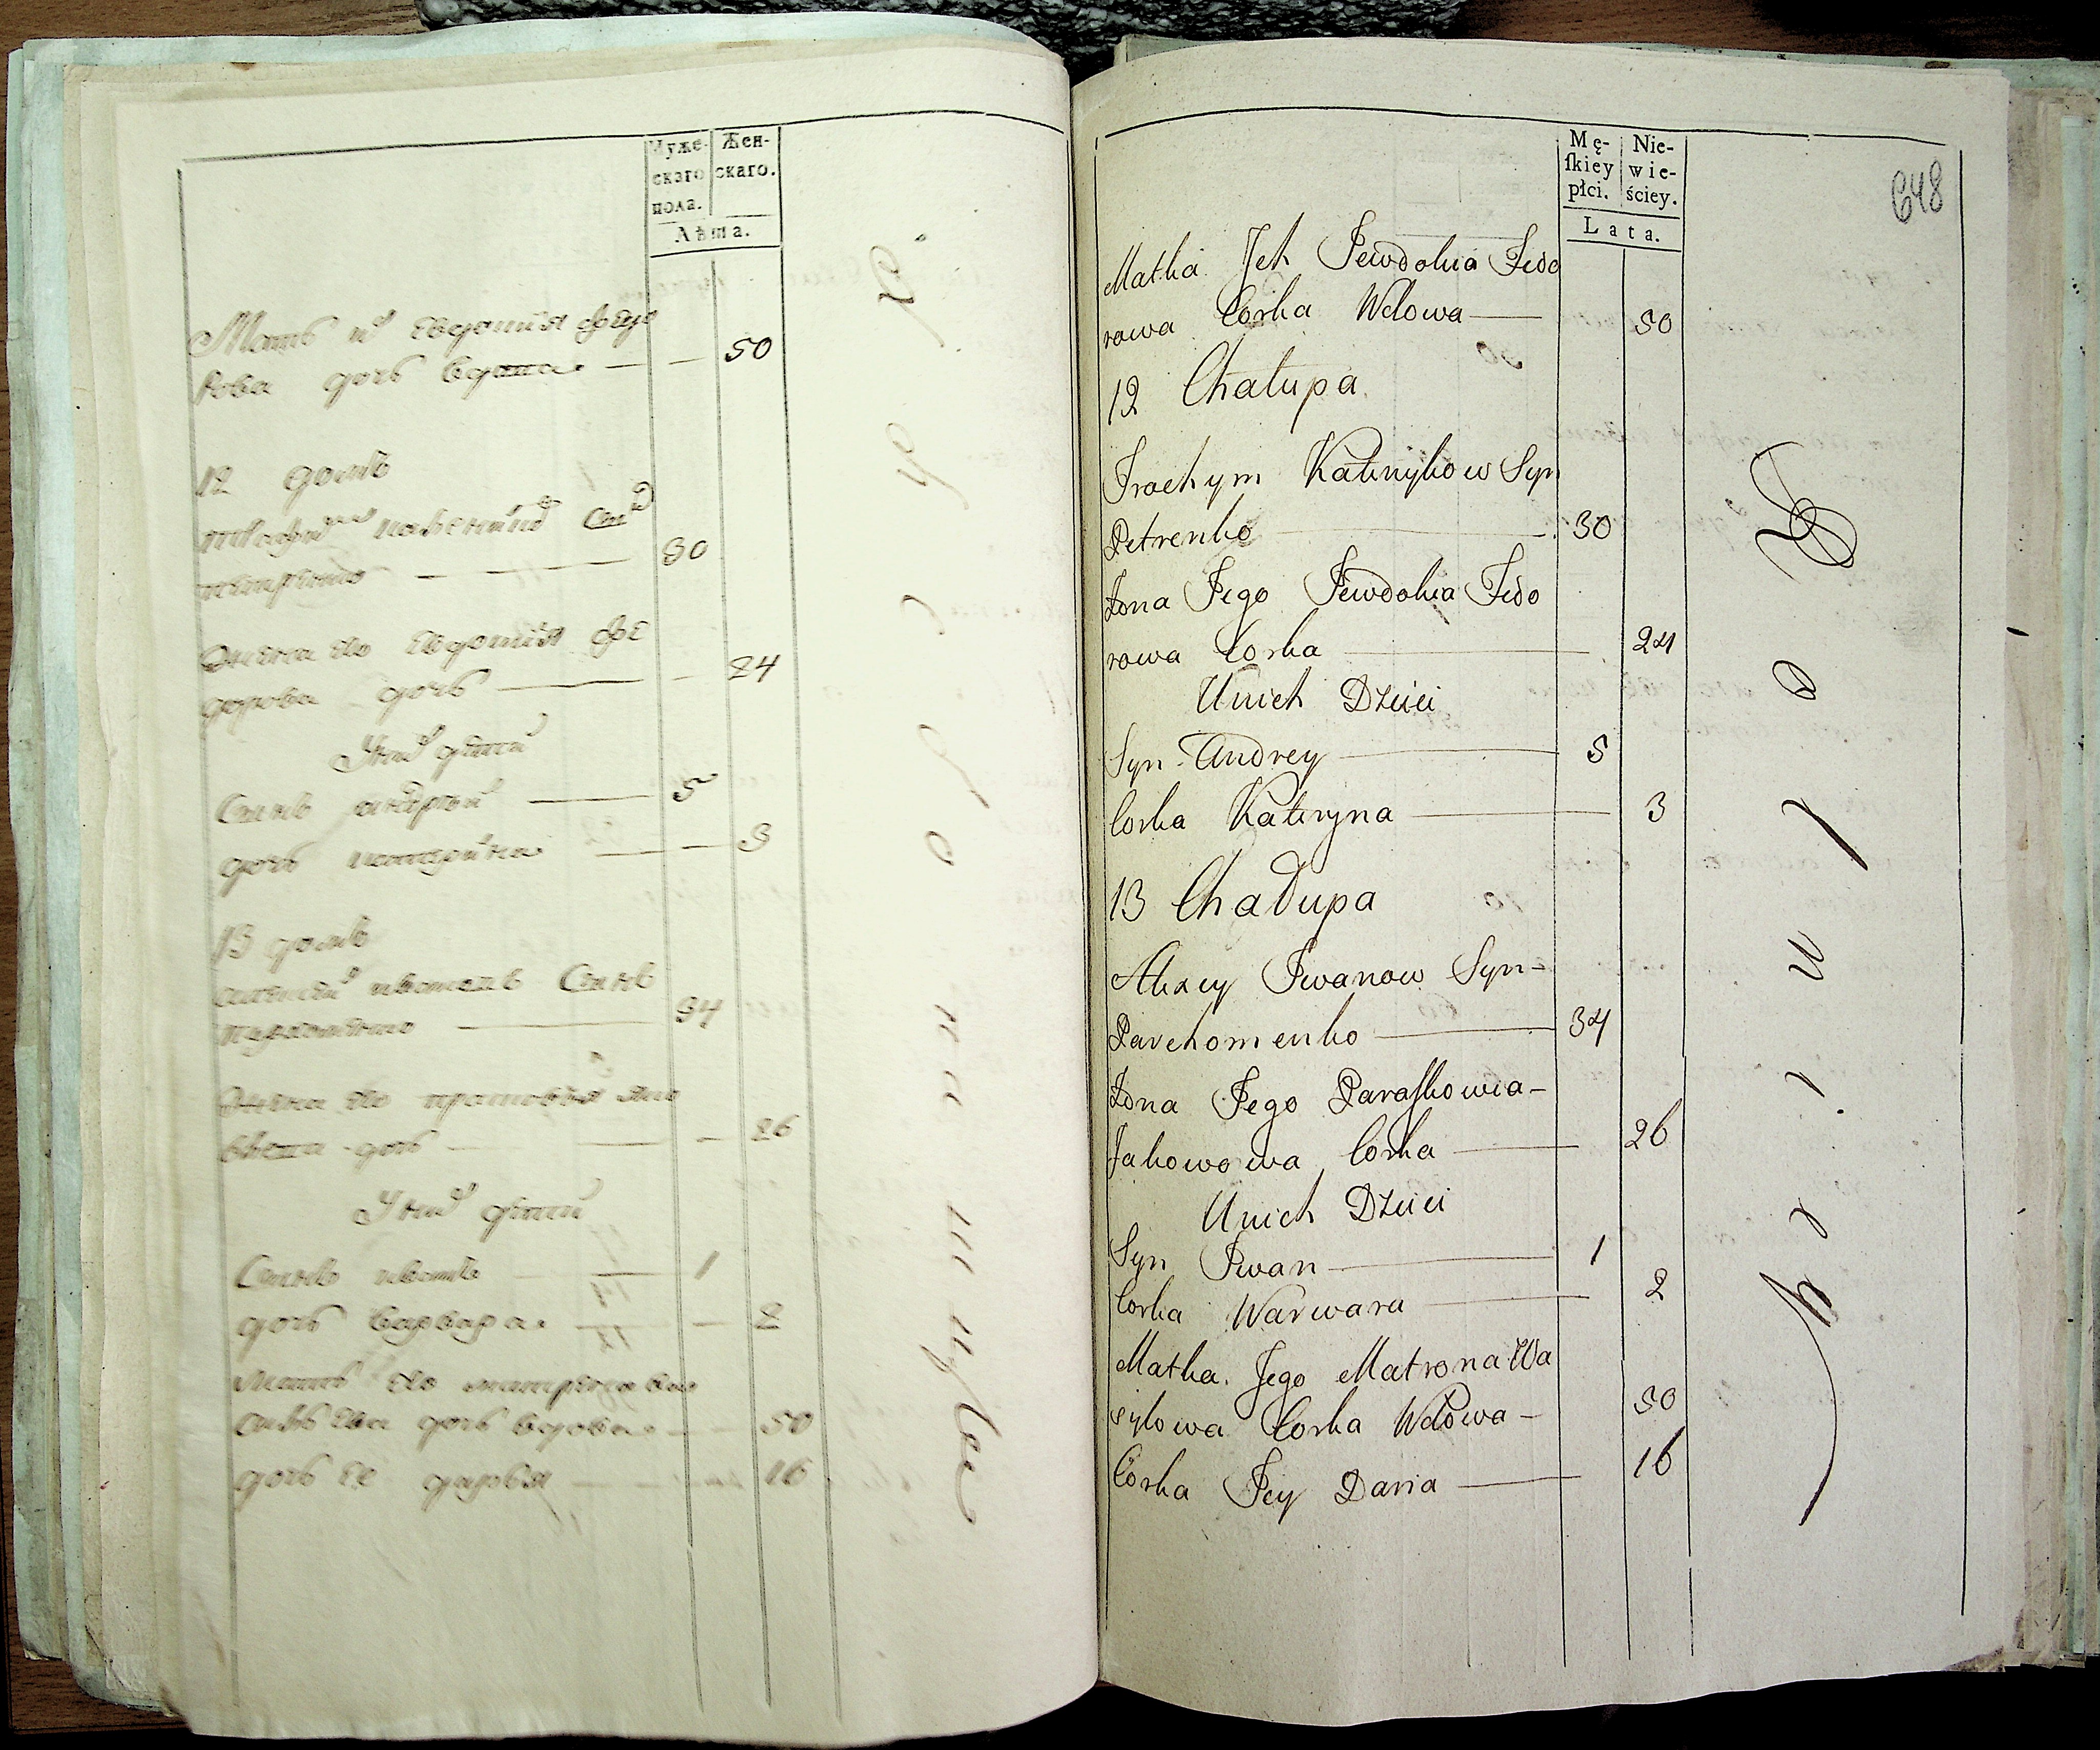 Муже-
скаго
пола.
Жен-
скаго.
Лѣта.
Мать их Евдокия Федо
рова дочь вдова — 50
12 домъ
30
Жена его Евдокия Фе
дорова дочь — 24
У них дети
Сынъ андрей — 5
дочь катерина — 3
13 домъ
алексей ивановъ Сынъ
пархоменко — 34
Жена его прасковья яко
влева дочь — 26
У них дети
Сынъ иванъ — 1
дочь варвара — 2
Мать его матрена ва
сильева дочь вдова — 50
дочь ее дарья — 16
Mę-
ſkiey
płci.
Nie-
wie-
ściey.
Lata.
648
Matka Jch Jewdokia Fedo
rowa Corka Wdowa — 50
12 Chałupa
Trochym Kalenykow Syn
Petrenko — 30
Żona Jego Jewdokia Fedo
rowa Corka — 24
Unich Dzieci
Syn Andrey — 5
Corka Kateryna — 3
13 Chałupa
Alexey Jwanow Syn —
Parchomenko — 34
Żona Jego Paraſkowia —
Jakowowa Corka — 26
Unich Dzieci
Syn Jwan — 1
Corka Warwara — 2
Matka Jego Matrona Wa
sylowa Corka Wdowa — 50
Corka Jey Daria — 16